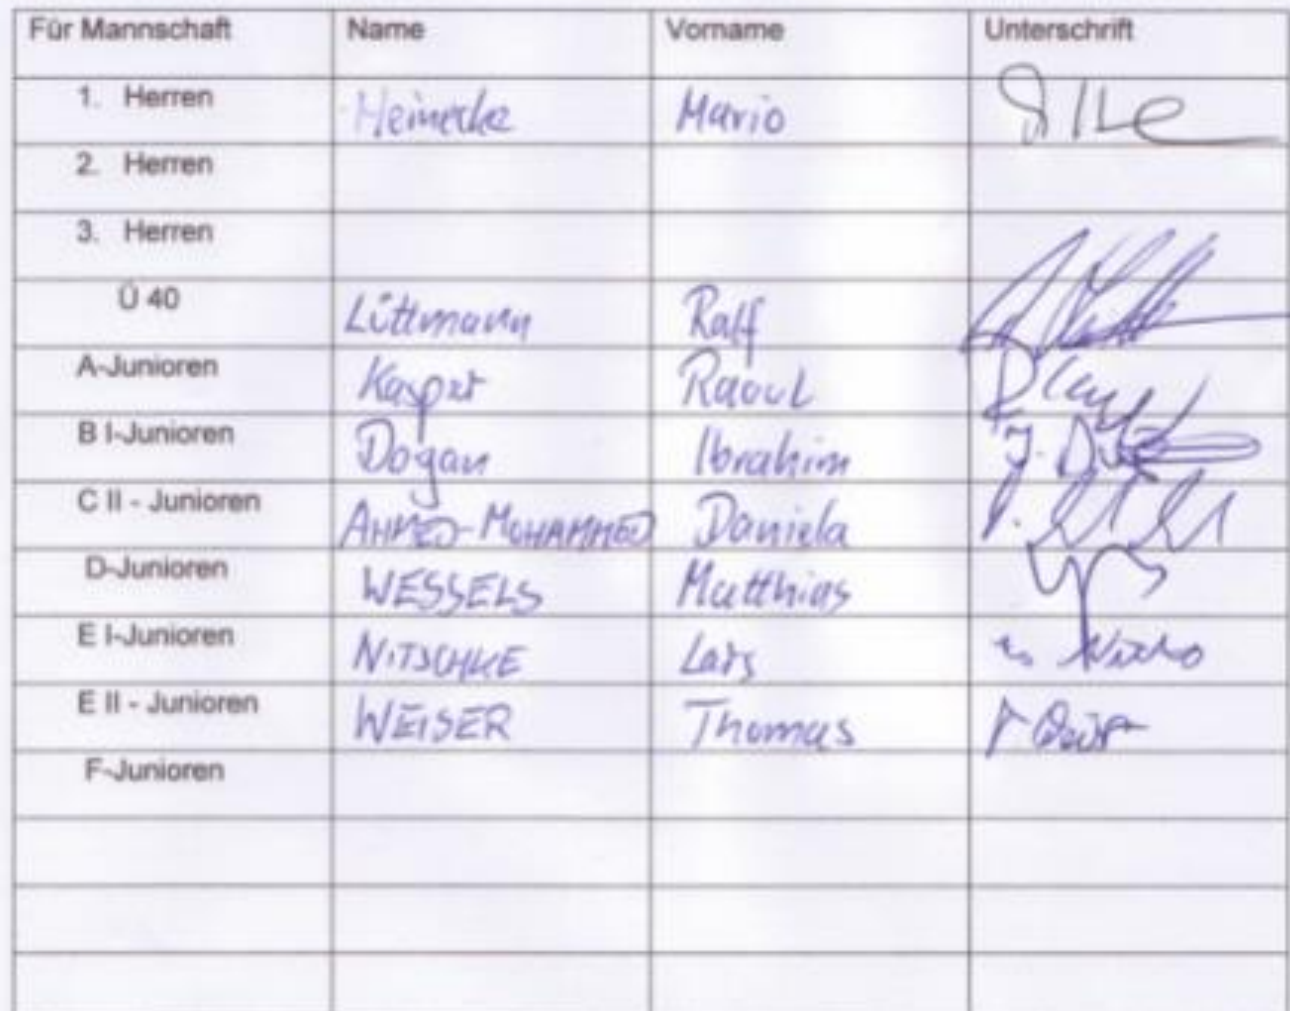 Für Mannschaft Name Vorname Unterschrift
1. Herren Heinecke Mario
2. Herren
3. Herren
Ü 40 Lüttmann Ralf
A-Junioren Kasper Raoul
B I-Junioren Dogan Ibrahim
C II - Junioren AHMED-MOHAMMED Daniela
D-Junioren WESSELS Matthias
E I-Junioren NITSCHKE Lars
E II - Junioren WEISER Thomas
F-Junioren